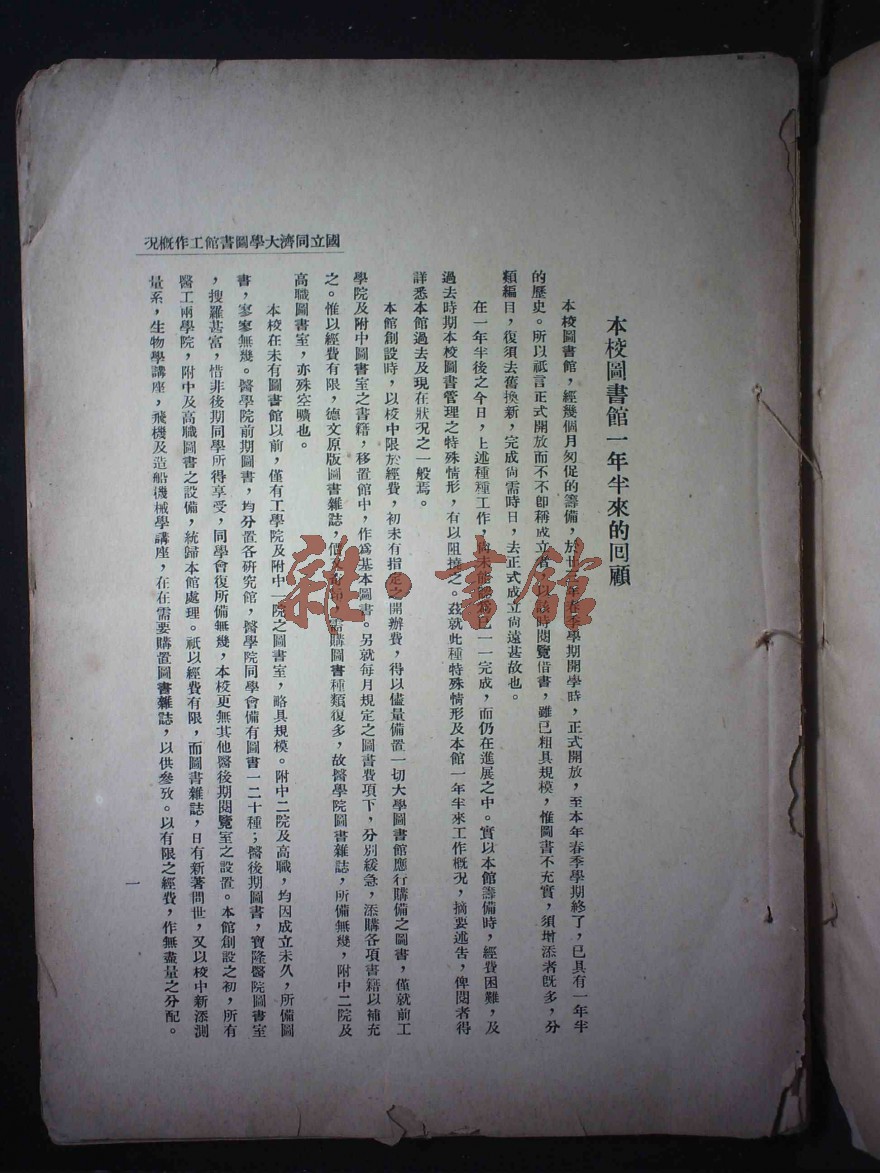 本校圖書館一年半來的回顧
本校圖書館，經幾個月匆促的籌備，於廿三年春季學期開學時，正式開放，至本年春季學期終了，已具有一年半
的歷史。所以祇言正式開放而不不卽稱成立者，以該時閱覽借書，雖已粗具規模，惟圖書不充實，須增添者旣多，分
類編目，復須去舊換新，完成尙需時日，去正式成立尙遠甚故也。
在一年半後之今日，上述種種工作，尙未能認爲已一一完成，而仍在進展之中。實以本館籌備時，經費困難，及
過去時期本校圖書管理之特殊情形，有以阻撓之。茲就此種特殊情形及本館一年半來工作概况，摘要述吿，俾閱者得
詳悉本館過去及現在狀况之一般焉。
本館創設時，以校中限於經費，初未有指定之開辦費，得以儘量備置一切大學圖書館應行購備之圖書，僅就前工
學院及附中圖書室之書籍，移置館中，作爲基本圖書。另就每月規定之圖書費項下，分別緩急，添購各項書籍以補充
之。惟以經費有限，德文原版圖書雜誌，價又奇昂，需購圖書種類復多，故醫學院圖書雜誌，所備無幾，附中二院及
高職圖書室，亦殊空曠也。
本校在未有圖書館以前，僅有工學院及附中一院之圖書室，略具規模。附中二院及高職，均因成立未久，所備圖
書，寥寥無幾。醫學院前期圖書，均分置各研究館，醫學院同學會備有圖書一二十種；醫後期圖書，寶隆醫院圖書室
，搜羅甚富，惜非後期同學所得享受，同學會復所備無幾，本校更無其他醫後期閱覽室之設置。本館創設之初，所有
醫工兩學院，附中及高職圖書之設備，統歸本館處理。祇以經費有限，而圖書雜誌，日有新著問世，又以校中新添測
量系，生物學講座，飛機及造船機械學講座，在在需要購置圖書雜誌，以供參攷。以有限之經費，作無盡量之分配。
國立同濟大學圖書館工作概况
一
雜·書館